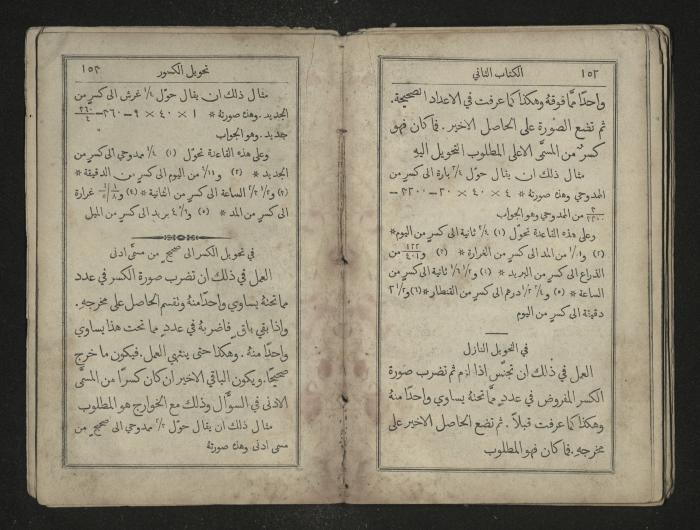 ١٥٢
الكتاب الثاني
واحدًا مما فوقهُ وهكذا كما عرفت في الاعداد الصحيحة.
ثم تضع الصورة على الحاصل الاخير. فما كان فهو
كسرٌ من المسمَّى الاعلى المطلوب التحويل اليهِ
مثال ذلك ان يقال حوّل ٣/٤ بارة الى كسر من
الممدوحي وهذه صورتهُ * ٤ × ٤٠ × ٢٠ = ٣٢٠٠ =
٣/٣٢٠٠ من الممدوحي وهو الجواب
وعلى هذه القاعدة تحوّل (١) ثانية الى كسر من اليوم *
(٢) من المد الى كسر من الغرارة * (٣) من
الذراع الى كسر من البريد * ثانية الى كسر من
الساعة * (٥) درهم الى كسر من القنطار * (٦)
دقيقة الى كسر من اليوم
في التحويل النازل
العمل في ذلك ان تجنّس اذا لزم ثم تضرب صورة
الكسر المفروض في عددٍ مما تحتهُ يساوي واحدًا منهُ
وهكذا كما عرفت قبلًا. ثم تضع الحاصل الاخير على
مخرجهِ. فما كان فهو المطلوب
تحويل الكسور
١٥٣
مثال ذلك ان يقال حوّل غرش الى كسر من
الجديد. وهذه صورتهُ * ١ × ٤٠ × ٩ = ٣٦٠ = ٣٦٠/٤
جديد. وهو الجواب
وعلى هذه القاعدة تحوّل (١) ممدوحي الى كسر من
الجديد * (٢) من اليوم الى كسر من الدقيقة *
(٣) الساعة الى كسر من الثانية * (٤) غرارة
الى كسر من المد * (٥) بريد الى كسر من الميل
في تحويل الكسر الى صحيح من مسمًّى ادنى
العمل في ذلك ان تضرب صورة الكسر في عدد
مما تحتهُ يساوي واحدًا منهُ ونقسم الحاصل على مخرجهِ.
واذا بقي باقٍ فاضربهُ في عددٍ مما تحت هذا يساوي
واحدًا منهُ. وهكذا حتى ينتهي العمل. فيكون ما خرج
صحيحًا. ويكون الباقي الاخير ان كان كسرًا من المسمَّى
الادنى في السوَّال وذلك مع الخوارج هو المطلوب
مثال ذلك ان يقال حوّل ممدوحي الى صحيح من
مسمى ادنى وهذه صورتهُ